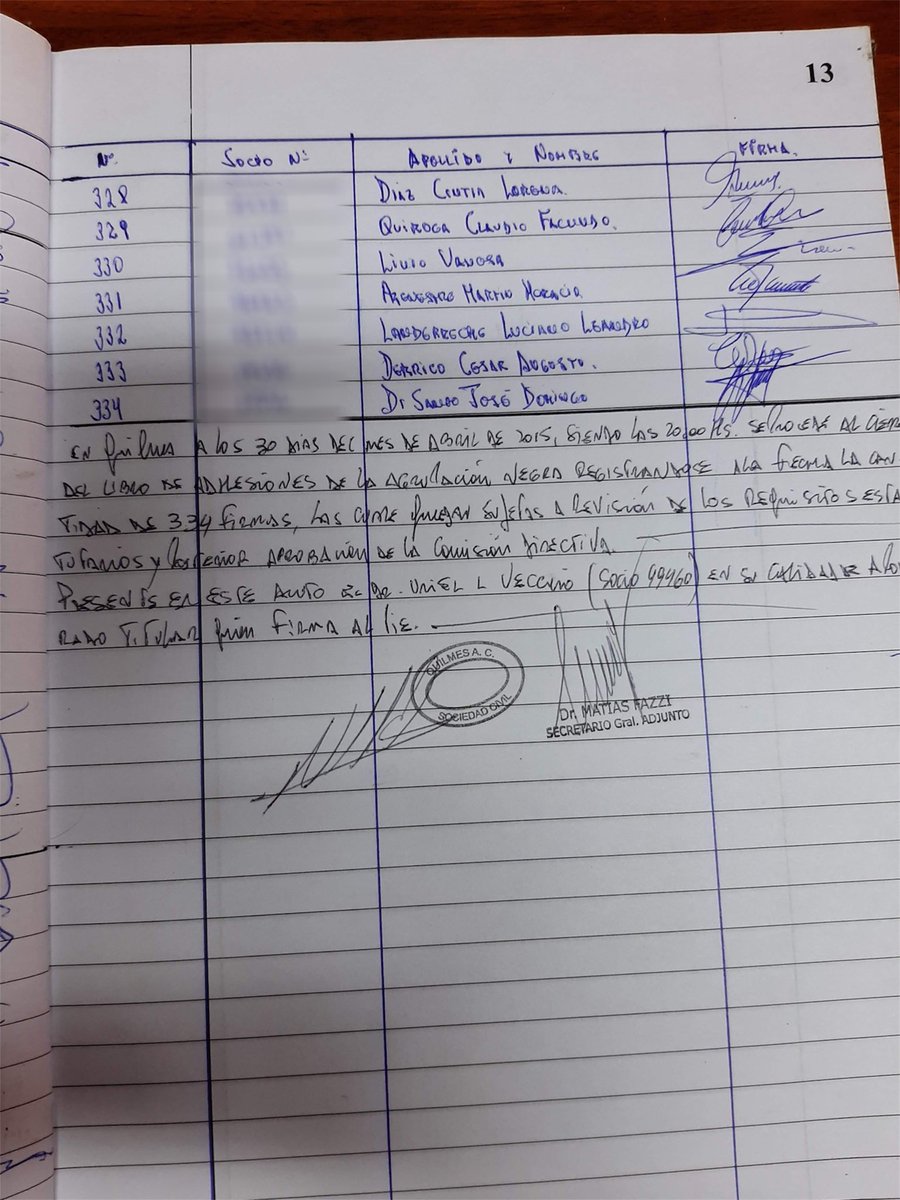 13
Nº. Socio Nº Apellido y Nombre Firma.
328 Diaz Cintia Lorena.
329 Quiroga Claudio Facundo.
330 Livio Vanesa
331 Martin Horacio
332 Landerreche Luciano Leandro
333 Derrico Cesar Augusto.
334 Di Sando José Domingo
En Quilmes a los 30 dias del mes de Abril de 2015, siendo las 20:00 Hs. se procede al cierre
del libro de adhesiones de la agrupación negra registrandose a la fecha la can
tidad de 334 firmas, las que quedan sujetas a revisión de los requisitos esta
tutarios y posterior aprobación de la Comisión Directiva.
Presente en este auto el Sr. Uriel L Vecchio (Socio 49460) en su calidad de apode
rado titular quien firma al pie.
QUILMES A. C.
SOCIEDAD CIVIL
Dr. MATIAS FAZZI
SECRETARIO Gral. ADJUNTO